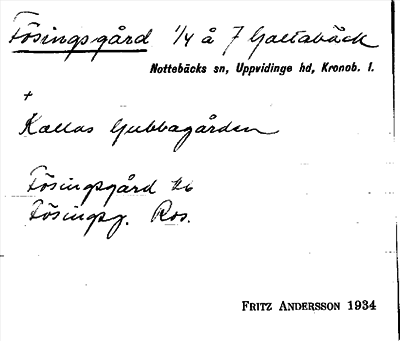 Fösingsgård 1/4 å 7 Galtabäck
Nottebäcks sn, Uppvidinge hd, Kronob. l.
+
Kallas Gubbagården
Fösingsgård
Fösingsg. Ros.
FRITZ ANDERSSON 1934